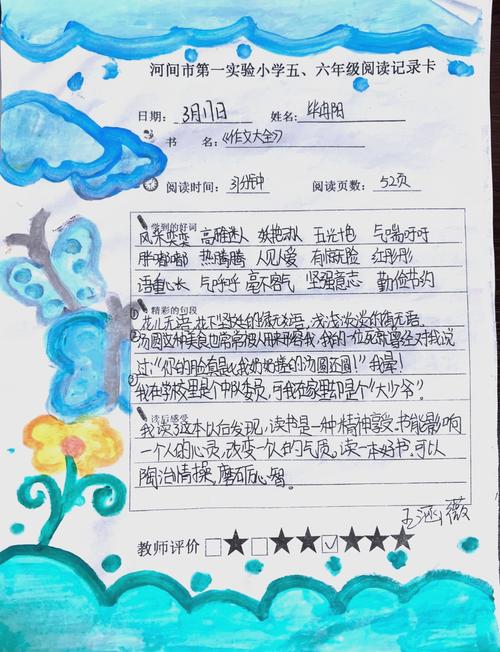 河间市第一实验小学五、六年级阅读记录卡
日期: 3月17日 姓名: 毕冉阳
书 名: 《作文大全》
阅读时间: 31分钟 阅读页数: 52页
学到的好词
风采奕奕 高雅迷人 妖艳动人 五光十色 气喘吁吁
胖嘟嘟 热腾腾 人见人爱 有滋无脸 红彤彤
语重心长 气呼呼 毫不客气 坚强意志 勤俭节约
精彩的句段
①花儿无语,花下坚处的绿无语,浅浅淡淡的绿无语。
②汤圆这种美食也常常被人用来形容我,我的一位死党曾经对我说
过:“你的脸真是比我奶奶搓的汤圆还圆!”我晕!
③我在学校里是个中队委员,可我在家里却是个“大少爷”。
读后感受
我读了这本以后发现,读书是一种精神享受,书能影响
一个人的心灵,改变一个人的气质。读一本好书,可以
陶冶情操,磨砺心智。
王涵薇
教师评价 □★ □★★ ☑★★★